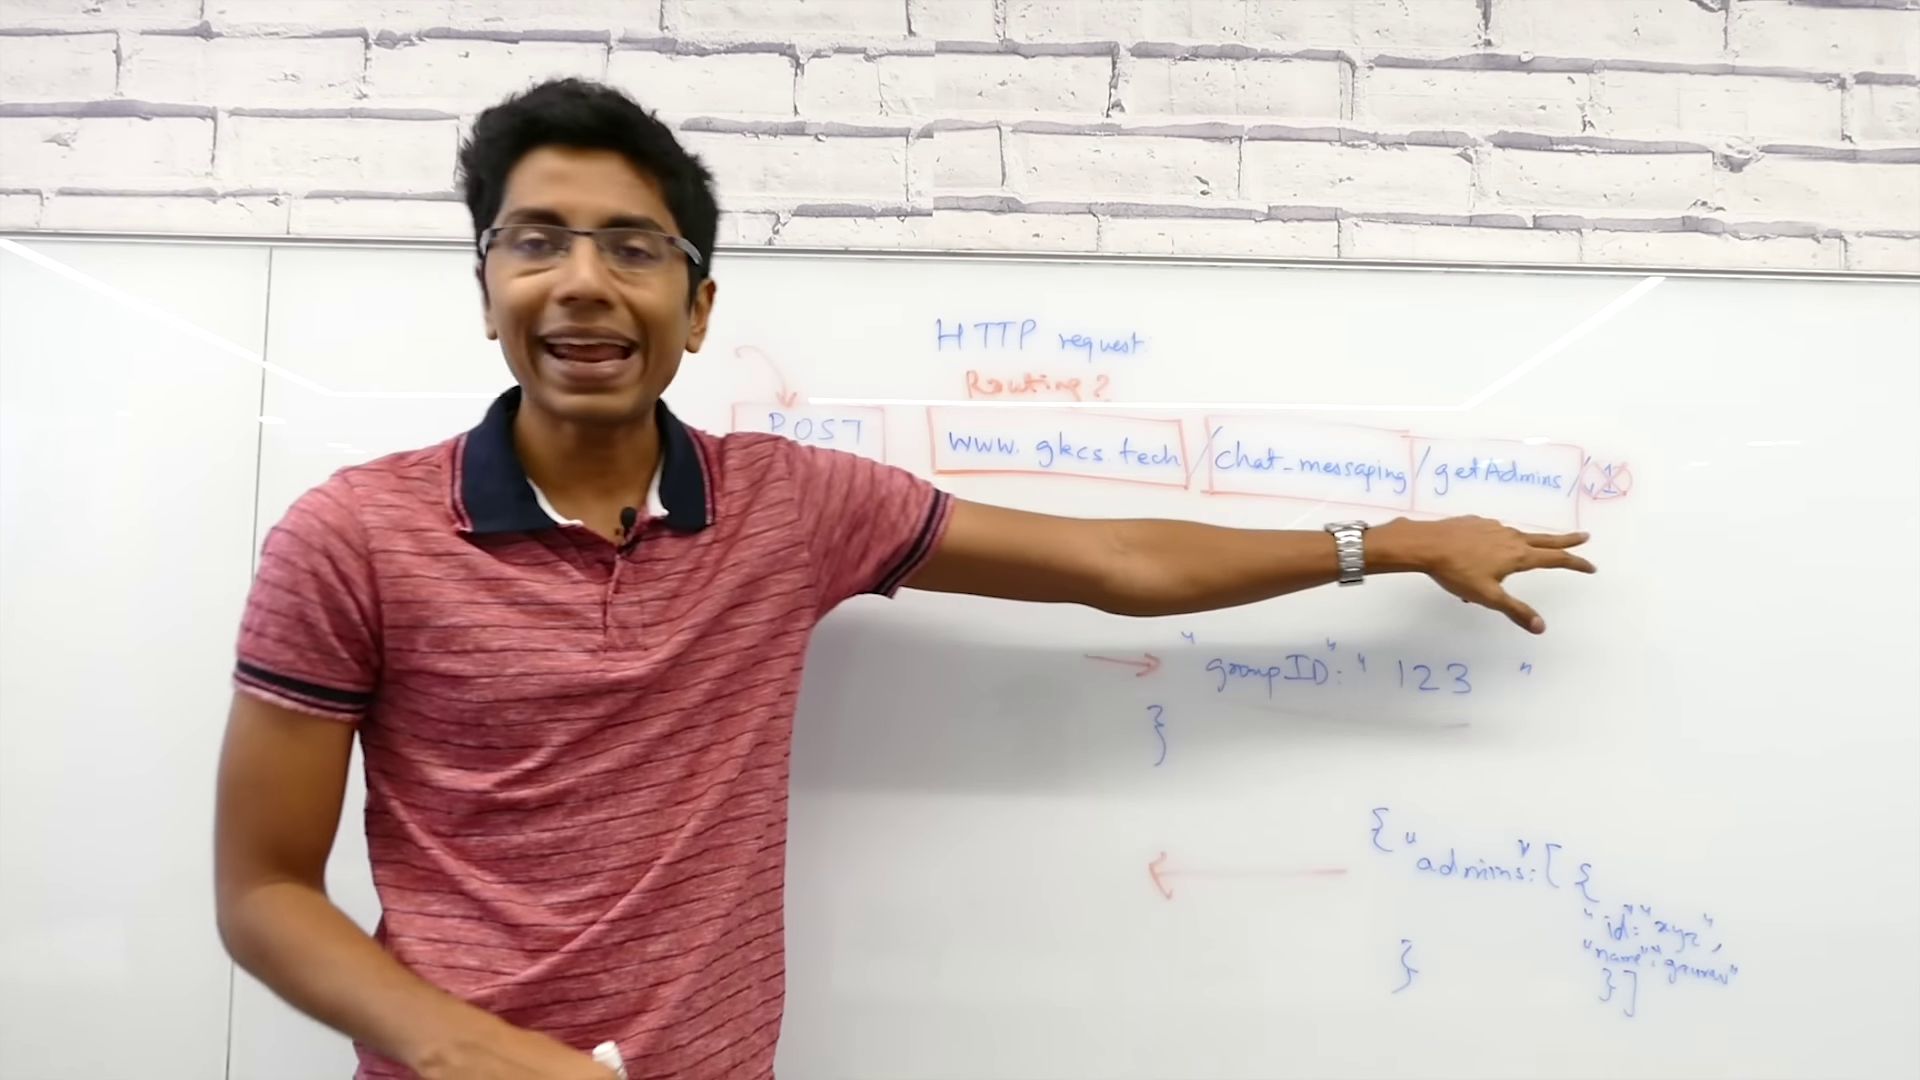 HTTP request
Routing?
POST www.gkcs.tech/chat_messaging/getAdmins/
"groupID": "123"
}
{ "admins": [ {
"id": "xyz",
"name": "gaurav"
} }]